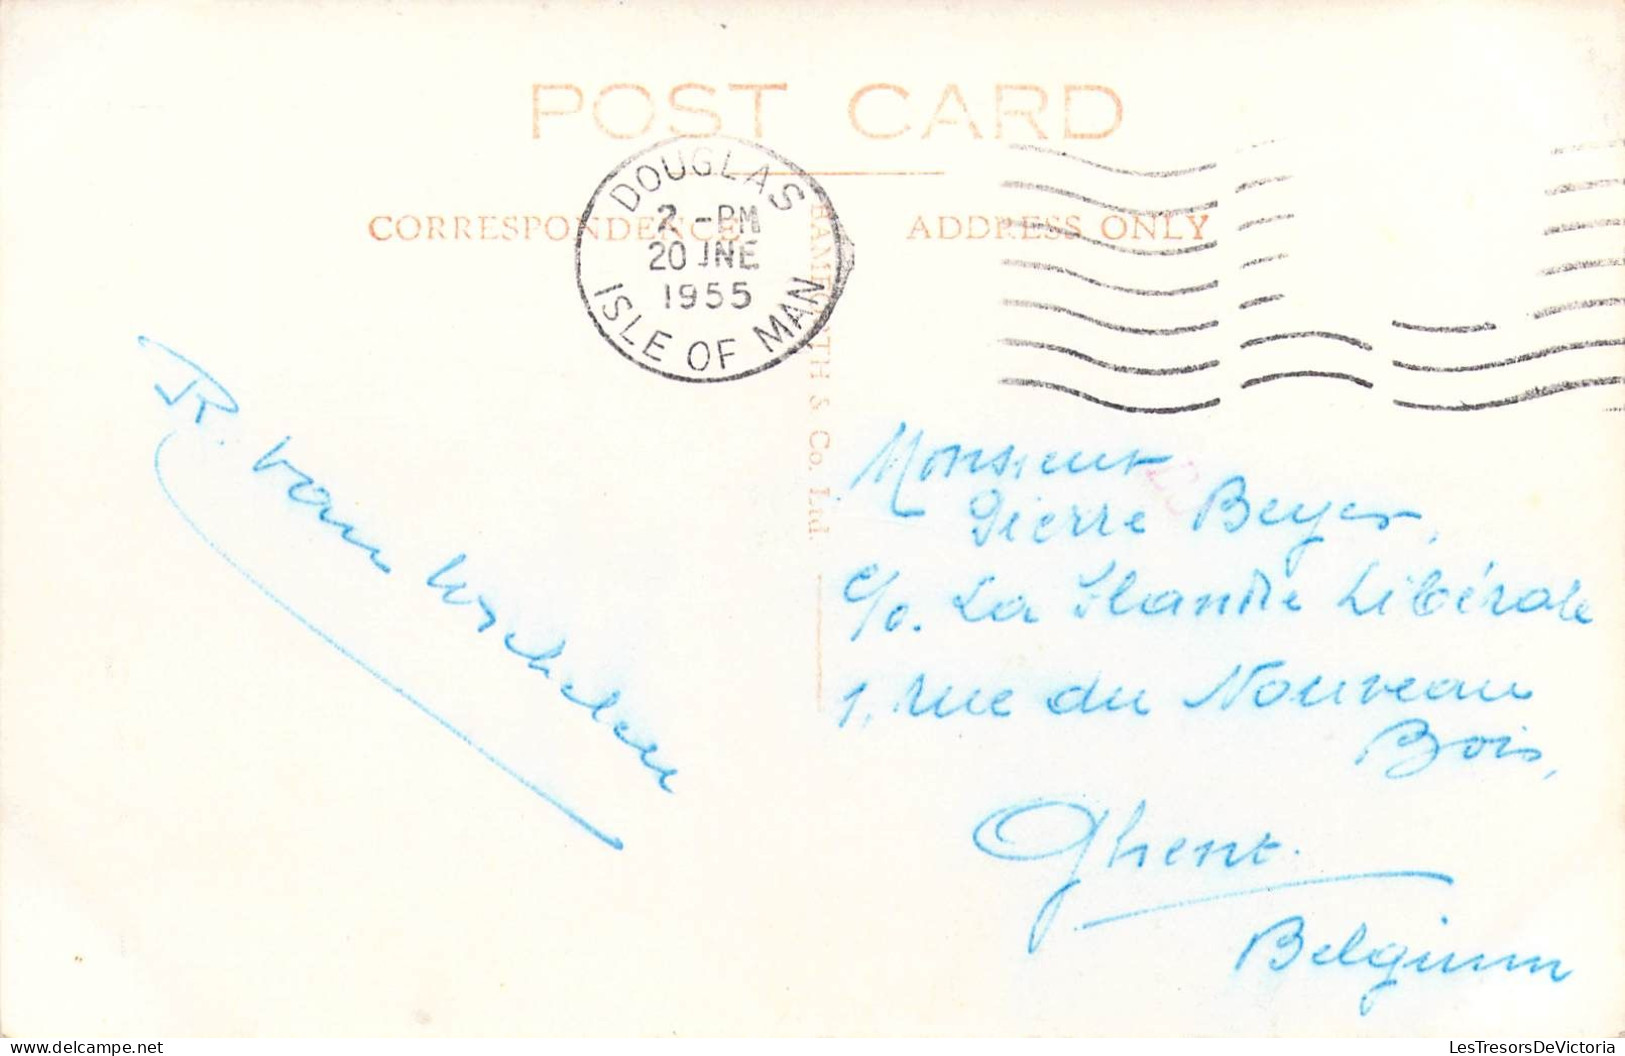 POST CARD
DOUGLAS
2 - PM
20 JNE
1955
ISLE OF MAN
CORRESPONDENCE
ADDRESS ONLY
BAMFORTH & Co. Ltd.
R. Van
Monsieur
Pierre Beyer,
c/o. La Flandre Libérale
1, rue du Nouveau
Bois,
Ghent.
Belgium
LesTresorsDeVictoria